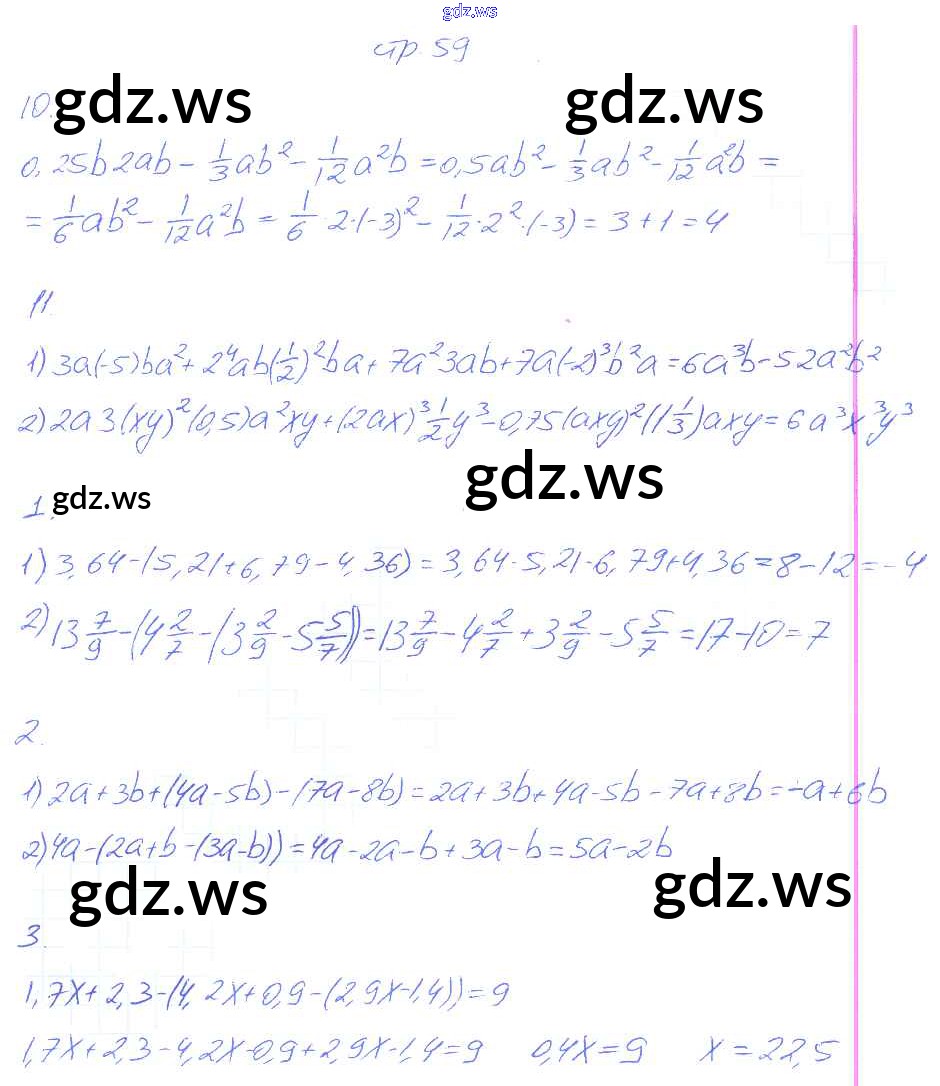 gdz.ws
стр. 59
gdz.ws gdz.ws
10.
0,25b2ab - 1/3ab² - 1/12a²b = 0,5ab² - 1/3ab² - 1/12a²b =
= 1/6ab² - 1/12a²b = 1/6·2·(-3)² - 1/12·2²·(-3) = 3+1=4
11.
1) 3a(-5)ba² + 2⁴ab(-1/2)²ba + 7a²3ab + 7a(-2)³b²a = 6a³b - 52a²b²
2) 2a3(xy)²(0,5)a²xy + (2ax)³1/2y³ - 0,75(axy)²(1 1/3)axy = 6a³x³y³
gdz.ws
1. gdz.ws
1) 3,64-(5,21+6,79-4,36) = 3,64-5,21-6,79+4,36 = 8-12 = -4
2) 13 7/9 - (4 2/7 - (3 2/9 - 5 5/7)) = 13 7/9 - 4 2/7 + 3 2/9 - 5 5/7 = 17-10 = 7
2.
1) 2a+3b+(4a-5b)-(7a-8b) = 2a+3b+4a-5b-7a+8b = -a+6b
2) 4a-(2a+b-(3a-b)) = 4a-2a-b+3a-b = 5a-2b
gdz.ws gdz.ws
3.
1,7x+2,3-(4,2x+0,9-(2,9x-1,4)) = 9
1,7x+2,3-4,2x-0,9+2,9x-1,4=9 0,4x=9 x=22,5